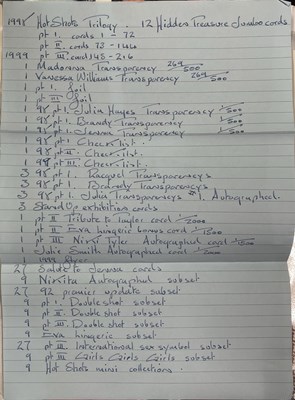 1998 Hot Shots Trilogy. 12 Hidden Treasure Jumbo cards
pt I. cards 1 - 72
pt II. cards 73 - 144
1999 pt III. card 145 - 216
1 Madonna Transparency 264/500
1 Vanessa Williams Transparency 264/500
1 pt I. Foil
1 pt III. Foil
1 98 pt I. Julia Hayes Transparency 1/500
1 98 pt I. Brandy Transparency 1/500
1 98 pt I. Jenna Transparency 1/500
1 98 pt I. Checklist.
1 98 pt II. Checklist.
1 98 pt III. Checklist.
3 98 pt I. Racquel Transparencys
3 98 pt I. Brandy Transparencys
3 98 pt I. Julia Transparencys 1. Autographed.
3 Stand Up exhibition cards
1 pt II Tribute to Taylor card 1/2000
1 pt II Eva bonus card 1/1500
1 pt III Nikki Tyler Autographed card 1/1500
1 Julie Smith Autographed card /5000
1 1999
27 Salute to Jenna cards
9 Nikita Autographed subset
27 92 premier update subset
9 pt I. Double shot subset
9 pt II. Double shot subset
9 pt III. Double shot subset
9 Eva subset
27 pt III International sex symbol subset
9 pt III Girls Girls Girls subset
9 Hot Shots mini collections.